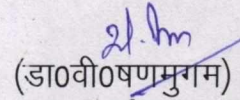 (डा0वी0षणमुगम)